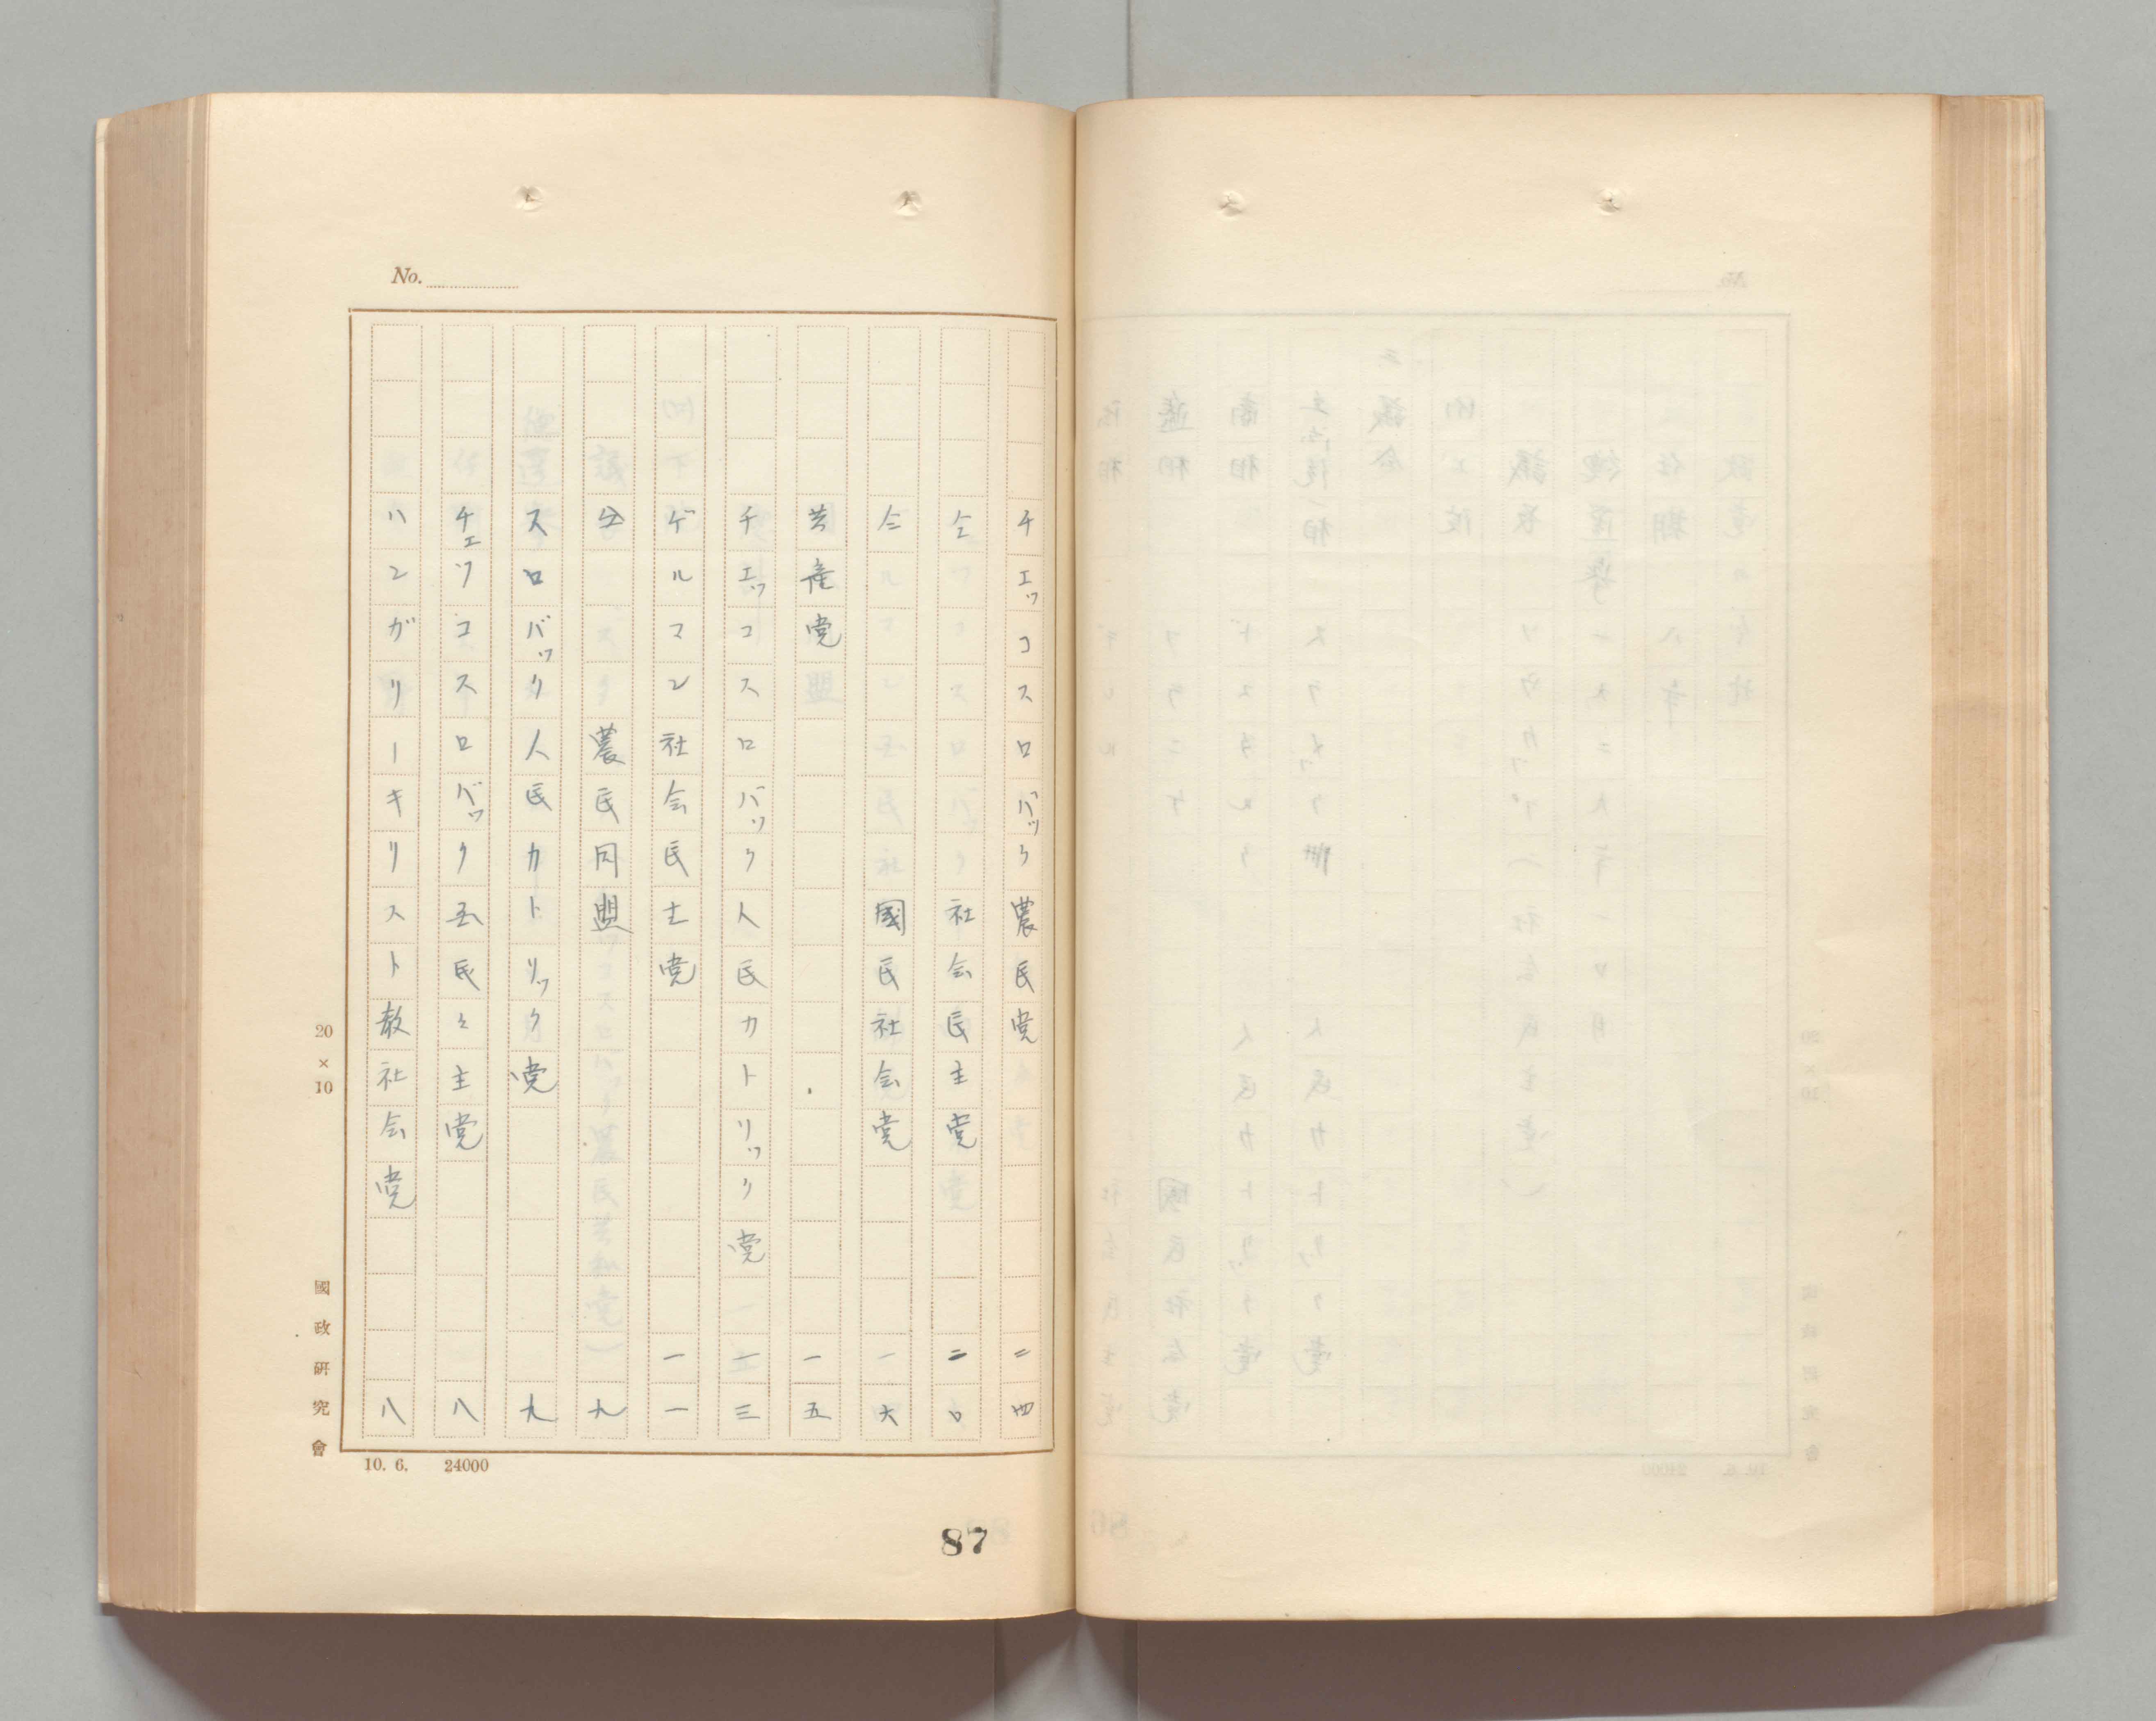 No.
チエッコスロバック農民党 二四
仝 社会民主党 二〇
仝 國民社会党 一六
共産党 一五
チエッコスロバック人民カトリック党 一三
ゲルマン社会民主党 一一
仝 農民同盟 九
スロバック人民カトリック党 九
チェッコスロバック国民々主党 八
ハンガリーキリスト教社会党 八
20×10
國政研究會
10. 6. 24000
87